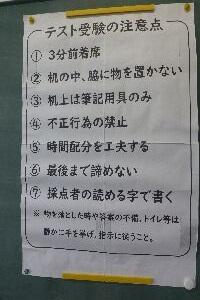 テスト受験の注意点
① 3分前着席
② 机の中、脇に物を置かない
③ 机上は筆記用具のみ
④ 不正行為の禁止
⑤ 時間配分を工夫する
⑥ 最後まで諦めない
⑦ 採点者の読める字で書く
※ 物を落とした時や答案の不備、トイレ等は
静かに手を挙げ、指示に従うこと。